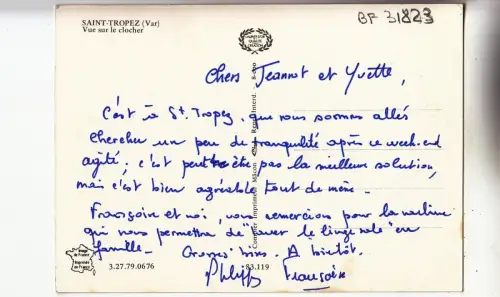 SAINT-TROPEZ (Var)
Vue sur le clocher
BF 31823
Chers Jeannot et Yvette,
C'est à St. Tropez que nous sommes allés
chercher un peu de tranquilité après ce week-end
agité; c'est peut être pas la meilleure solution,
mais c'est bien agréable tout de même.
Françoise et moi, vous remercions pour la machine
qui nous permettra de "laver le linge sale" en
famille. Grosses bises. A bientôt.
Philippe Françoise
Image de France
Imprimé en France
3.27.79.0676
83.119